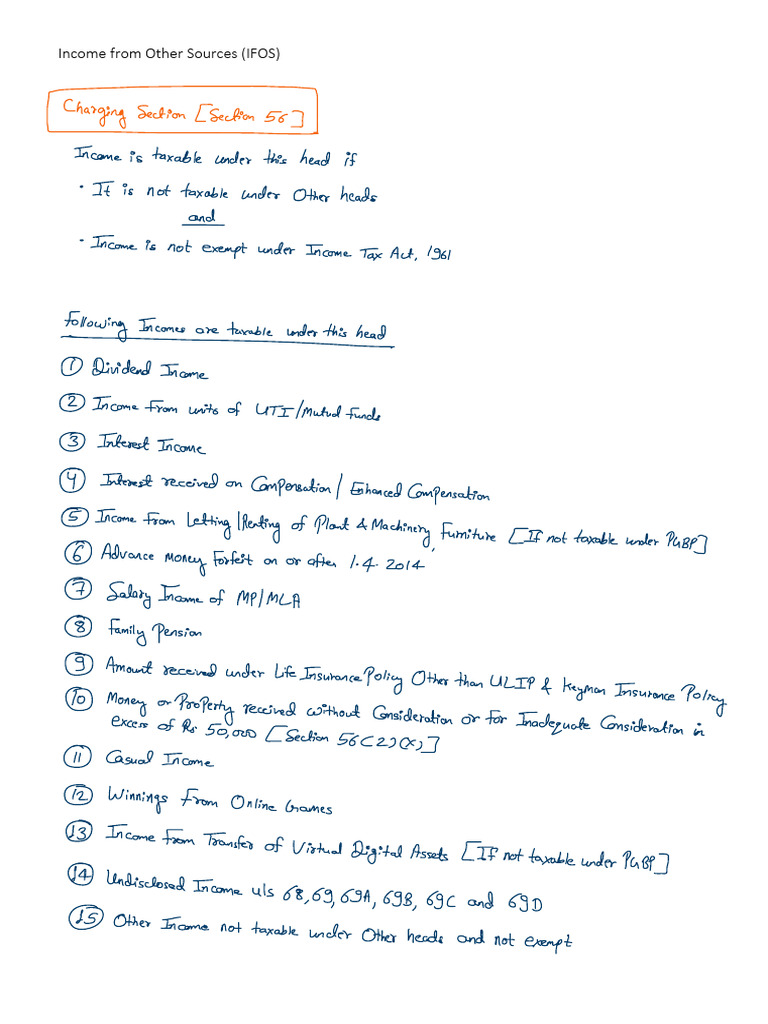 Income from Other Sources (IFOS)
Charging Section [Section 56]
Income is taxable under this head if
• It is not taxable under Other heads
and
• Income is not exempt under Income Tax Act, 1961
Following Incomes are taxable under this head
① Dividend Income
② Income from units of UTI/Mutual funds
③ Interest Income
④ Interest received on Compensation/Enhanced Compensation
⑤ Income from Letting/Renting of Plant & Machinery, Furniture [If not taxable under PGBP]
⑥ Advance money forfeit on or after 1.4.2014
⑦ Salary Income of MP/MLA
⑧ Family Pension
⑨ Amount received under Life Insurance Policy Other than ULIP & Keyman Insurance Policy
⑩ Money or Property received without Consideration or for Inadequate Consideration in
excess of Rs 50,000 [Section 56(2)(x)]
⑪ Casual Income
⑫ Winnings from Online Games
⑬ Income from Transfer of Virtual Digital Assets [If not taxable under PGBP]
⑭ Undisclosed Income u/s 68, 69, 69A, 69B, 69C and 69D
⑮ Other Income not taxable under Other heads and not exempt